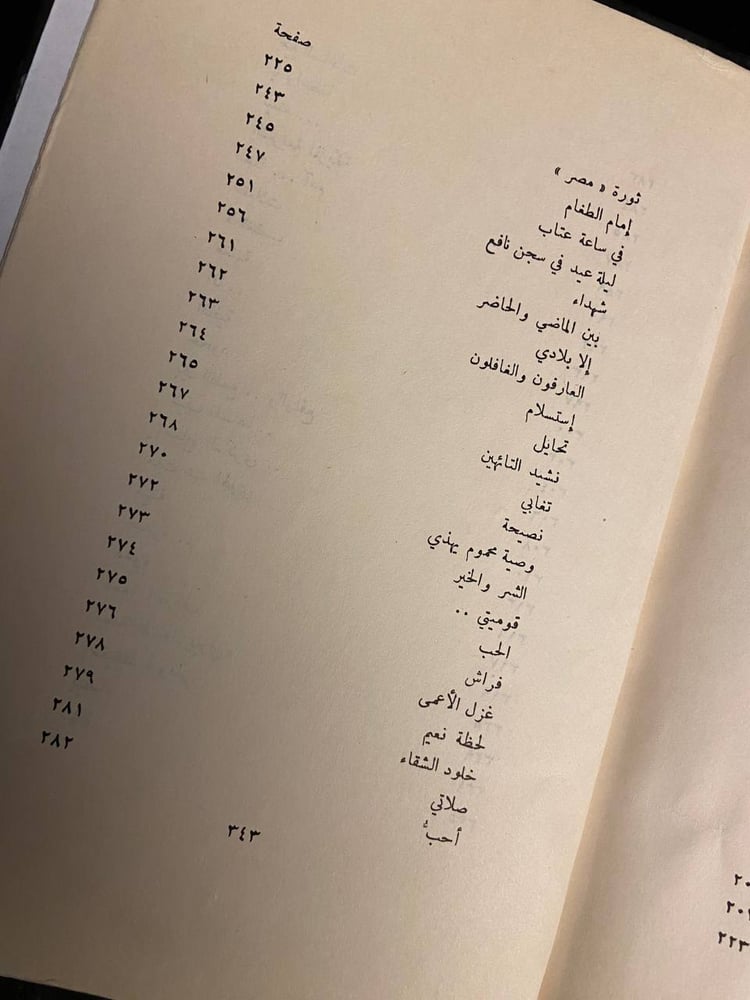 صفحة
ثورة « مصر » ٢٢٥
إمام الطغام ٢٤٣
في ساعة عتاب ٢٤٥
ليلة عيد في سجن نافع ٢٤٧
شهداء ٢٥١
بين الماضي والحاضر ٢٥٦
إلا بلادي ٢٦١
العارفون والغافلون ٢٦٢
إستسلام ٢٦٣
تحايل ٢٦٤
نشيد التائهين ٢٦٥
تغابي ٢٦٧
نصيحة ٢٦٨
وصية محموم يهذي ٢٧٠
الشر والخير ٢٧٢
قوميتي .. ٢٧٣
الحب ٢٧٤
فراش ٢٧٥
غزل الأعمى ٢٧٦
لحظة نعيم ٢٧٨
خلود الشقاء ٢٧٩
صلاتي ٢٨١
أحبُّ ٢٨٢
٣٤٣
٢٢٣